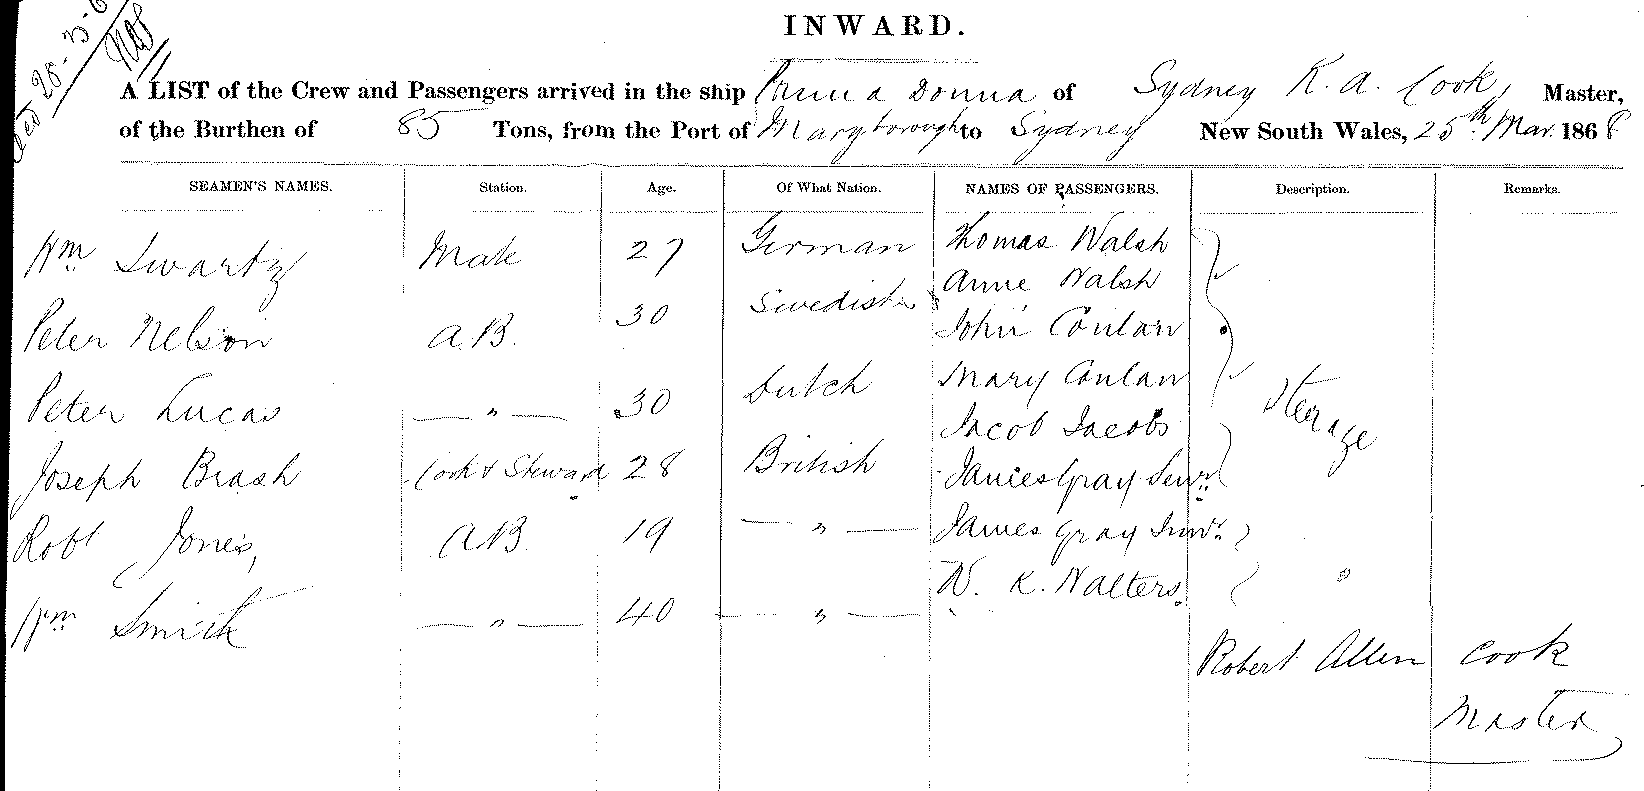 INWARD.
A LIST of the Crew and Passengers arrived in the ship Prima Donna of Sydney R. A. Cook, Master,
of the Burthen of 85 Tons, from the Port of Maryborough to Sydney New South Wales, 25th Mar. 1868
SEAMEN'S NAMES. Station. Age. Of What Nation. NAMES OF PASSENGERS. Description. Remarks.
Wm Swartz Mate 27 German Thomas Walsh
Anne Walsh
Peter Nelson A.B. 30 Swedish John Conlan
Mary Conlan
Peter Lucas — " — 30 Dutch Jacob Jacobs Steerage
Joseph Brash Cook & Steward 28 British James Gray Senr.
Robt Jones, A.B. 19 — " — James Gray Junr.
W. K. Walters "
Wm Smith — " — 40 — " —
Robert Allen Cook
Master